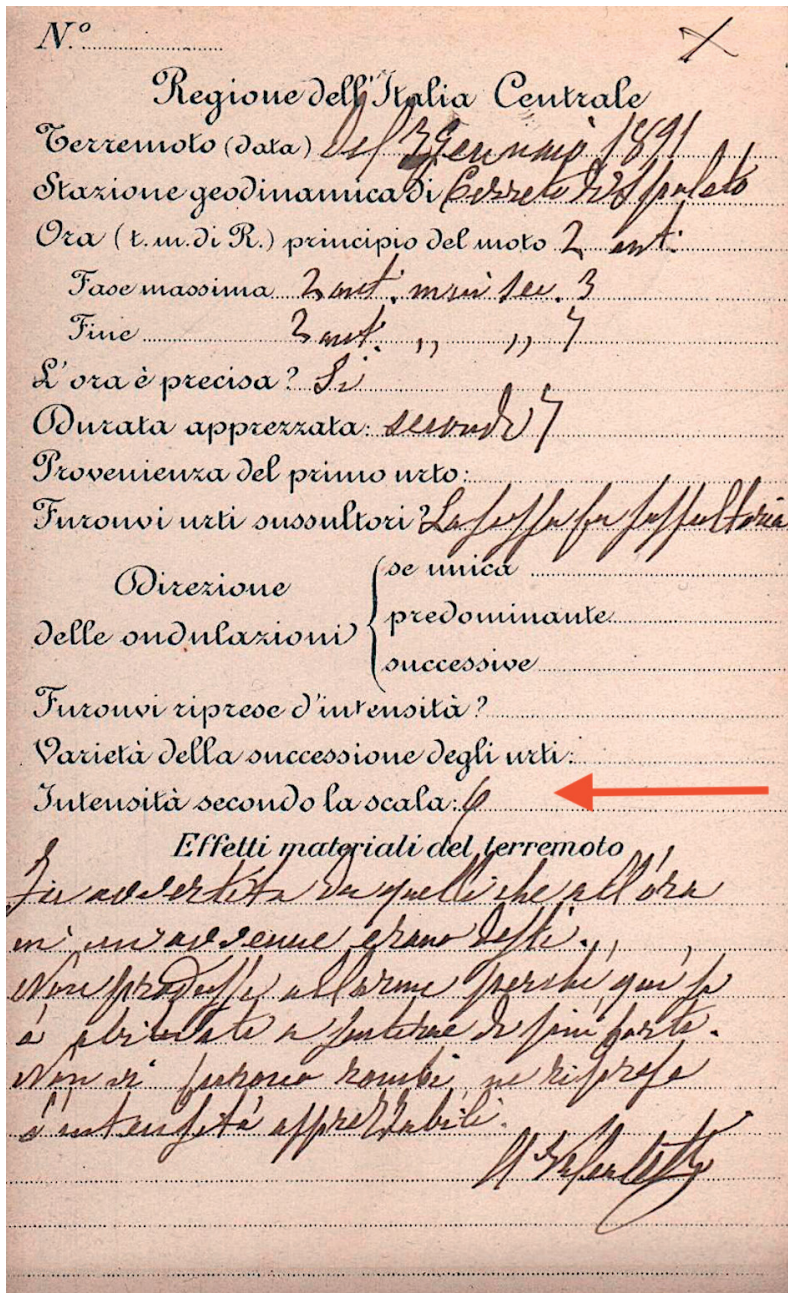 N.º
Regione dell'Italia Centrale
Terremoto (data) del 3 Gennaio 1891
Stazione geodinamica di Cerreto di Spoleto
Ora (t. m. di R.) principio del moto 2 ant.
Fase massima 2 ant. min sec. 3
Fine 2 ant. ,, ,, 7
L'ora è precisa? Si
Durata apprezzata: secondi 7
Provenienza del primo urto:
Furonvi urti sussultori? La scossa fu sussultoria
Direzione
delle ondulazioni
se unica
predominante
successive
Furonvi riprese d'intensità?
Varietà della successione degli urti:
Intensità secondo la scala: 6
Effetti materiali del terremoto
Fu avvertita da quelli che all'ora
in cui avvenne erano desti.
Non produsse allarme perchè qui si
è abituati a sentirne di più forte.
Non vi furono rombi, ne riprese
d'intensità apprezzabili.